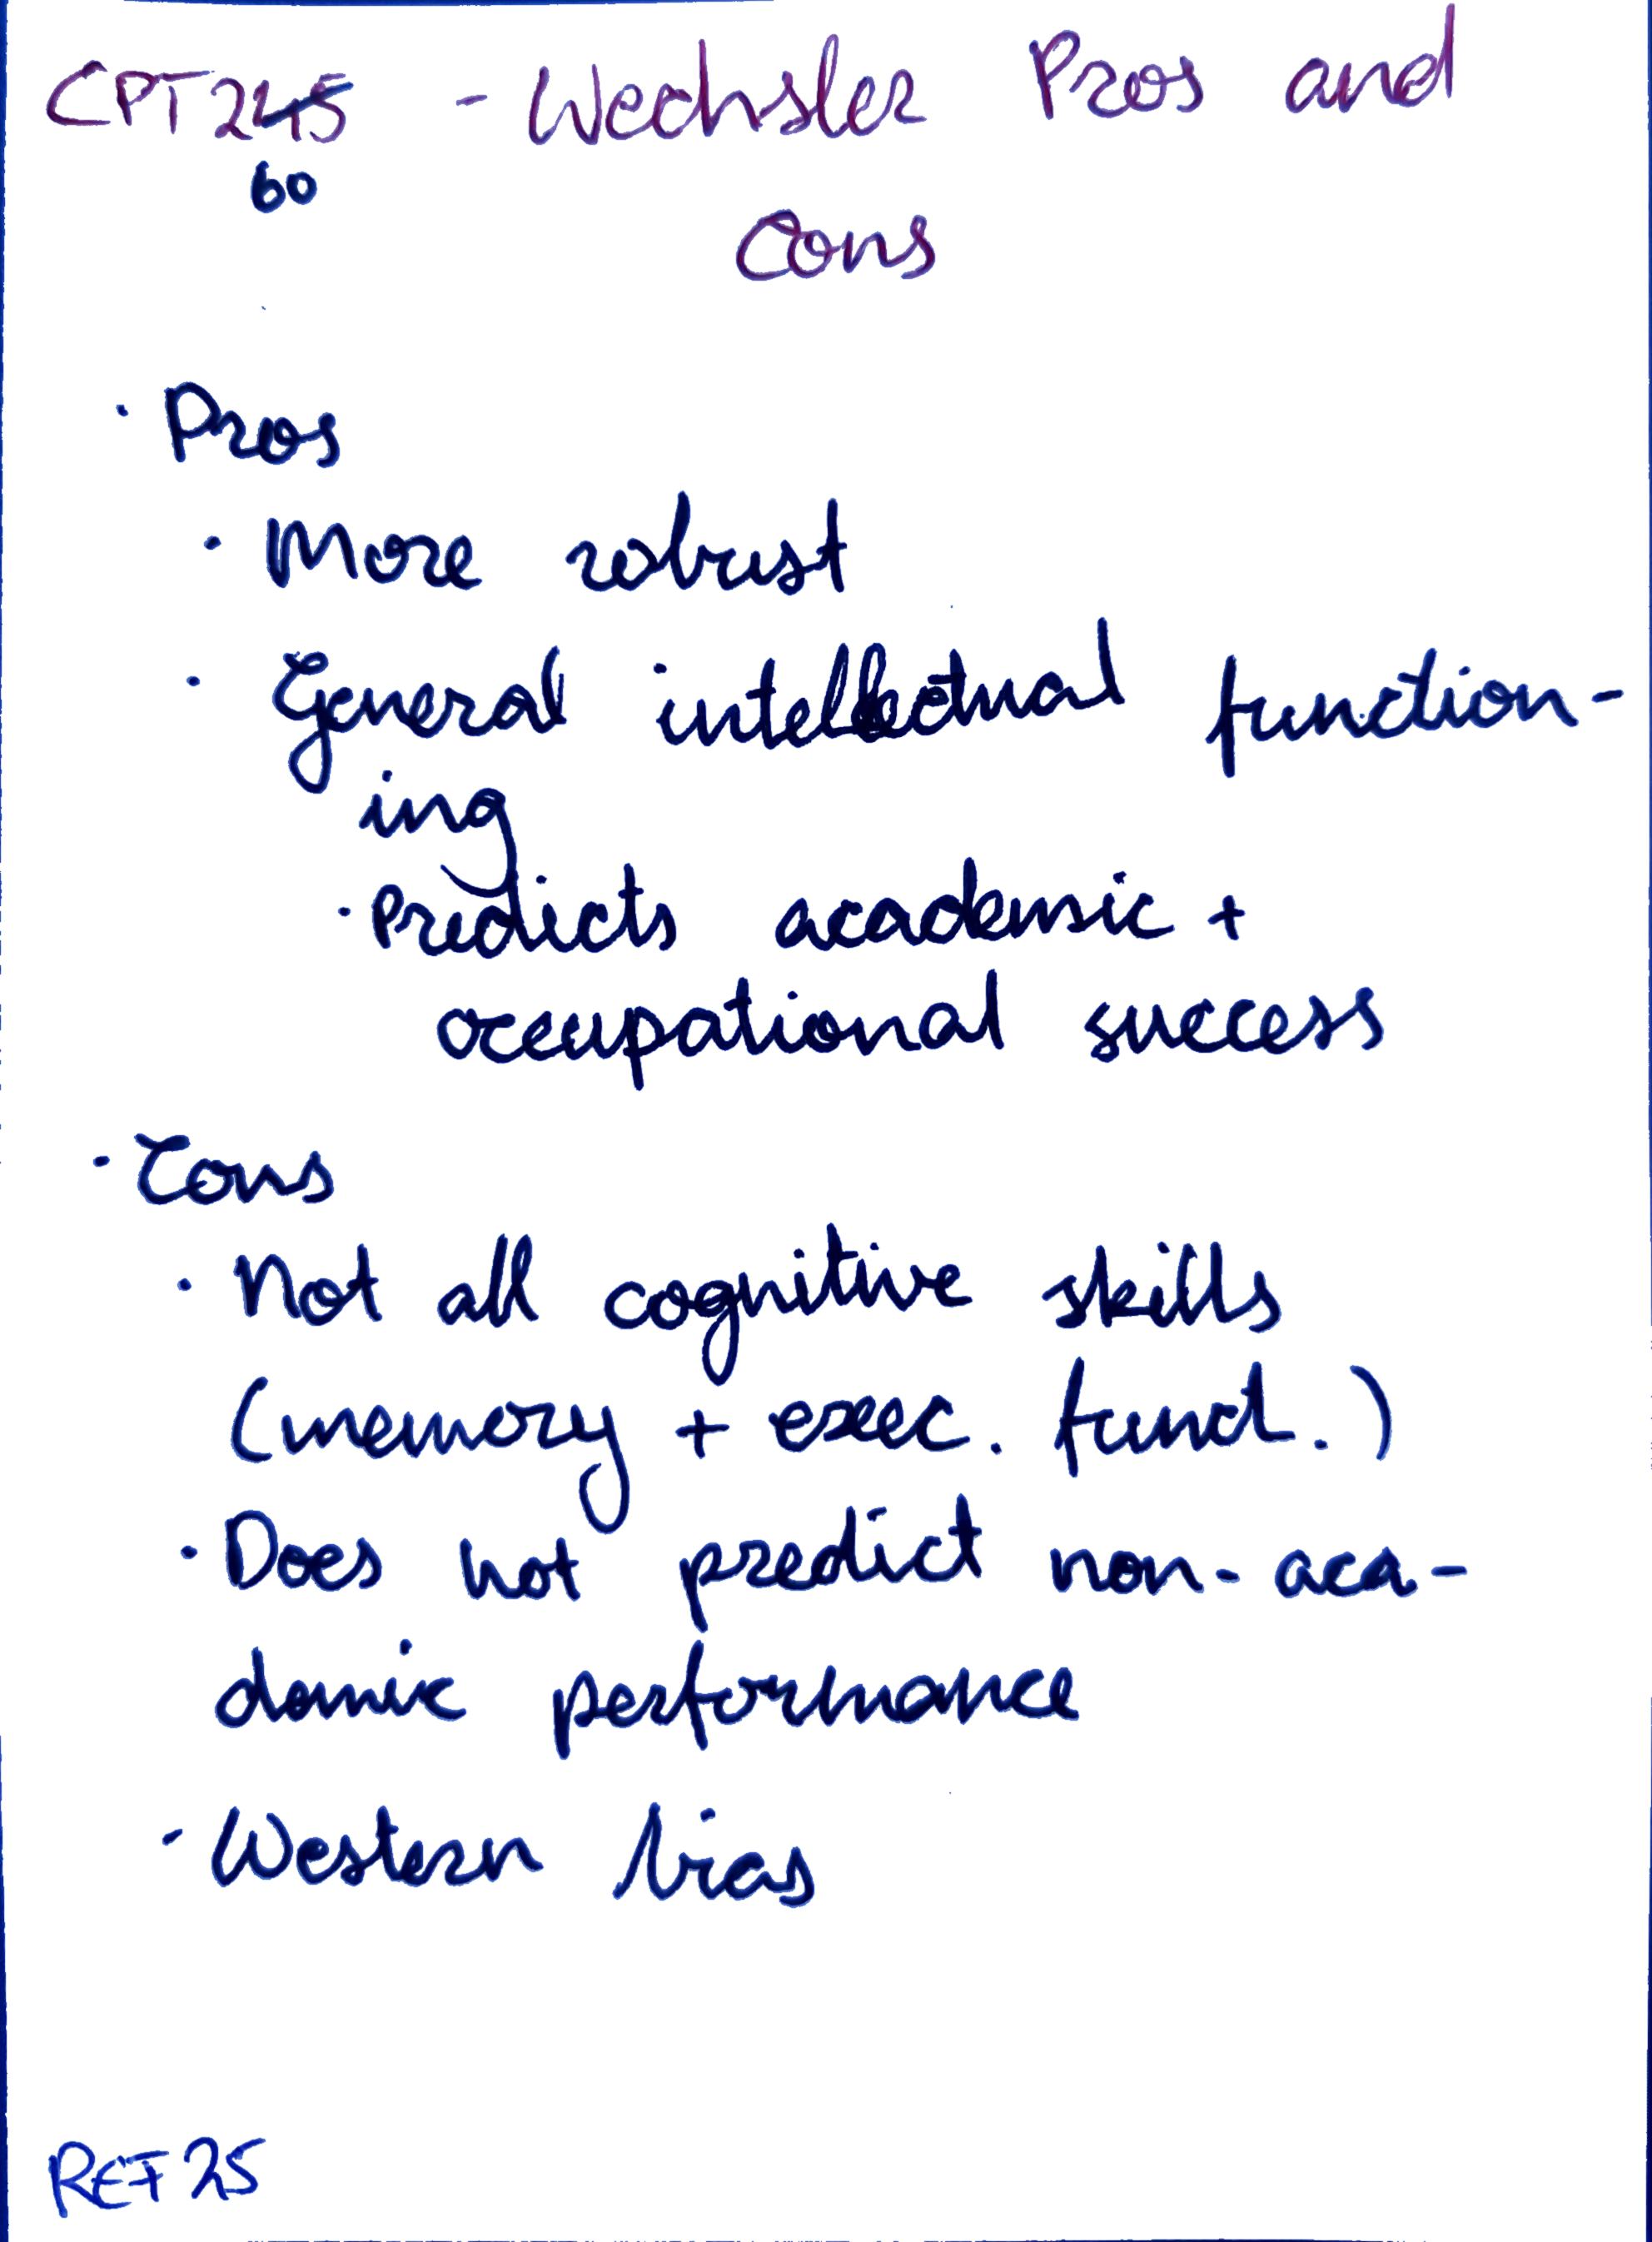 CPT245 - Wechsler Pros and
60
Cons
· Pros
· More robust
· General intellectual function-
ing
· Predicts academic +
occupational success
· Cons
· Not all cognitive skills
(memory + exec. funct.)
· Does not predict non-aca-
demic performance
· Western bias
REF25